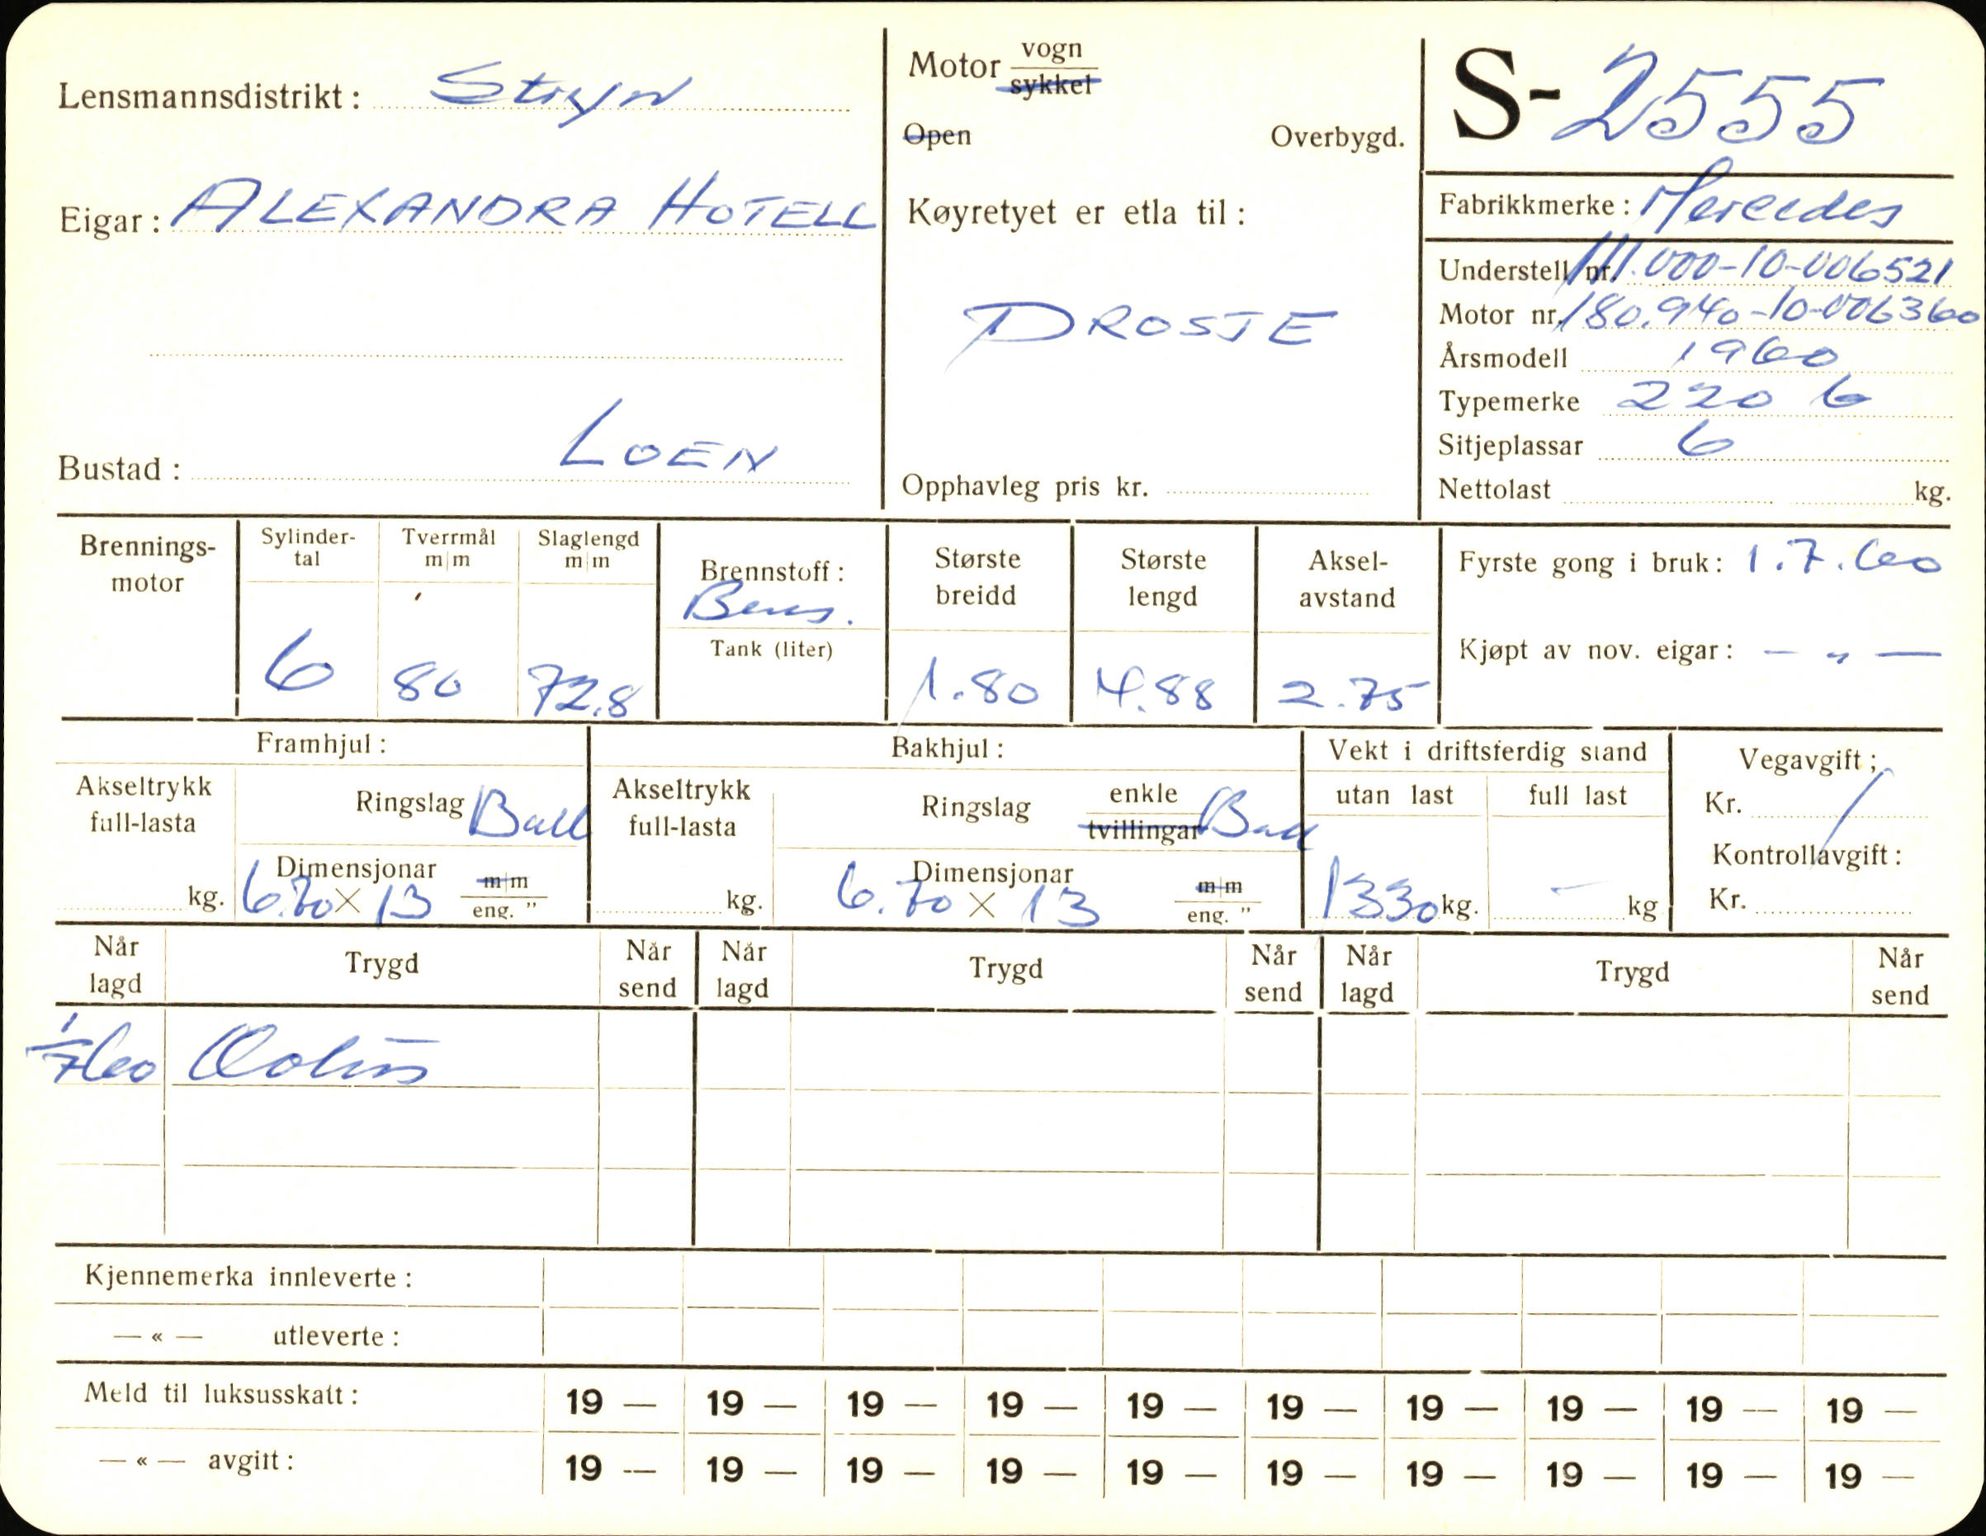 Lensmannsdistrikt: Stryn
Eigar: ALEXANDRA HOTELL
Bustad: LOEN
Motor vogn
sykkel
Open Overbygd.
Køyretyet er etla til:
DROSJE
Opphavleg pris kr.
S-2555
Fabrikkmerke: Mercedes
Understell nr. 111.000-10-006521
Motor nr. 180.940-10-006360
Årsmodell 1960
Typemerke 220 b
Sitjeplassar 6
Nettolast kg.
Brennings-
motor
Sylinder-
tal
6
Tverrmål
m|m
80
Slaglengd
m|m
72,8
Brennstoff:
Bens.
Tank (liter)
Største
breidd
1.80
Største
lengd
4.88
Aksel-
avstand
2.75
Fyrste gong i bruk: 1.7.60
Kjøpt av nov. eigar: — „ —
Framhjul:
Akseltrykk
full-lasta
kg.
Ringslag Ball
Dimensjonar
6.70 x 13 m|m
eng. "
Bakhjul:
Akseltrykk
full-lasta
kg.
Ringslag enkle
tvillingar Ball
Dimensjonar
6.70 x 13 m|m
eng. "
Vekt i driftsferdig stand
utan last full last
1330 kg. – kg
Vegavgift:
Kr. /
Kontrollavgift:
Kr.
Når
lagd Trygd Når
send Når
lagd Trygd Når
send Når
lagd Trygd Når
send
1/7 60
Kjennemerka innleverte:
— « — utleverte:
Meld til luksusskatt: 19 — 19 — 19 — 19 — 19 — 19 — 19 — 19 — 19 — 19 —
— « — avgift: 19 — 19 — 19 — 19 — 19 — 19 — 19 — 19 — 19 — 19 —